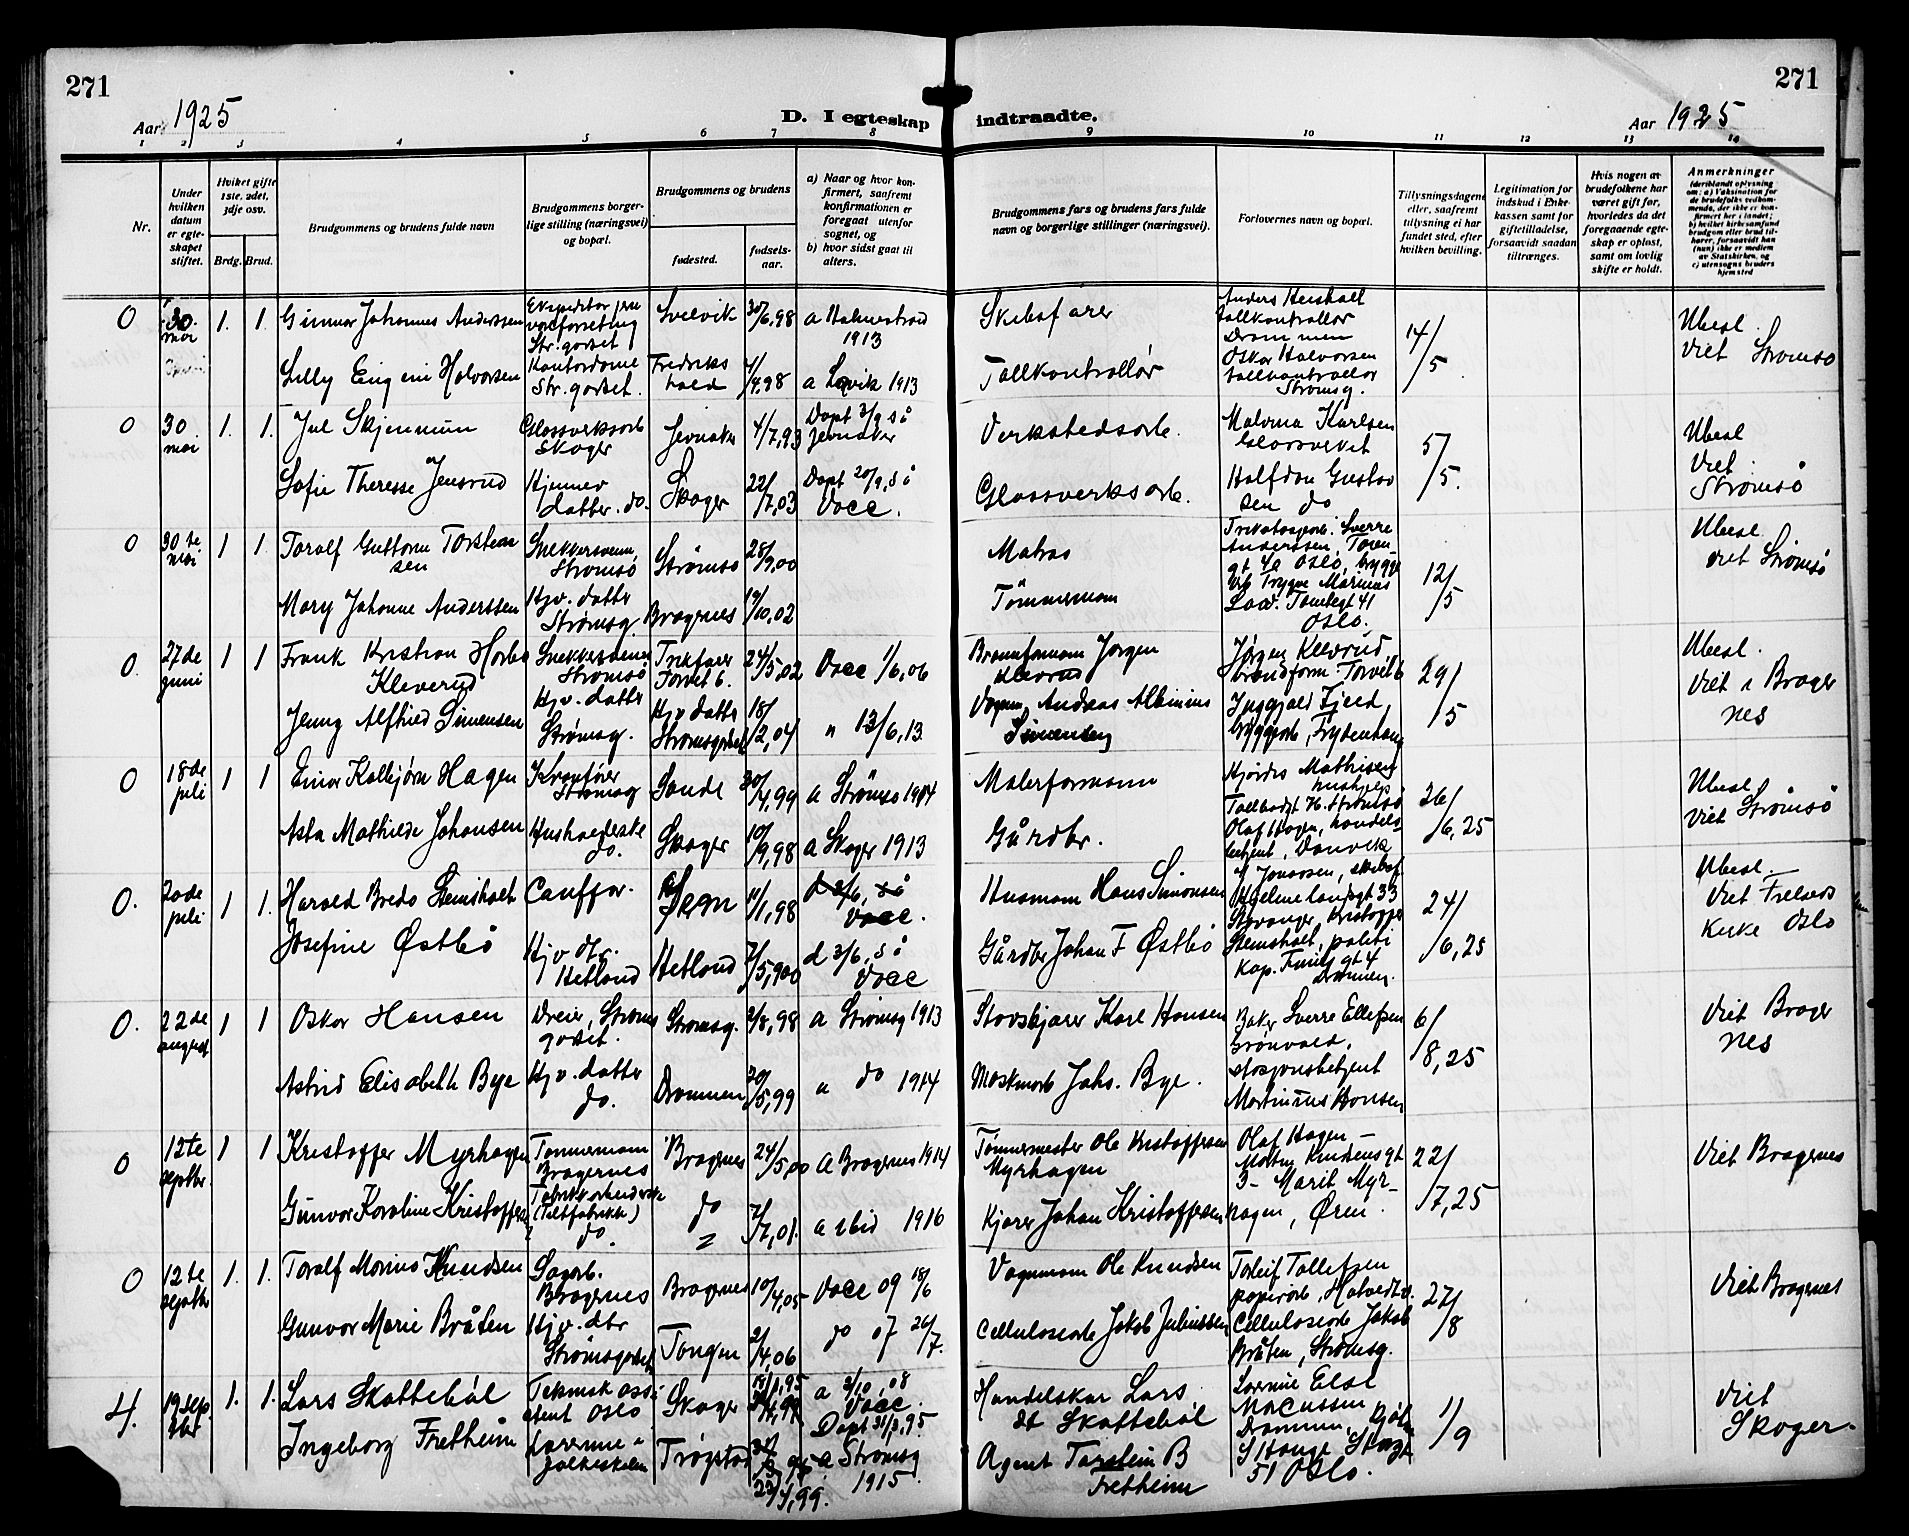 271
271
Aar 1925
D. I egteskap indtraadte.
Aar 1925
1 2 3 4 5 6 7 8 9 10 11 12 13 14
Nr.
Under hvilken datum er egteskapet stiftet.
Hvilket gifte 1ste, 2det, 3dje osv.
Brdg. Brud.
Brudgommens og brudens fulde navn
Brudgommens borgerlige stilling (næringsvei) og bopæl.
Brudgommens og brudens
fødested.
fødselsaar.
a) Naar og hvor konfirmert, saafremt konfirmationen er foregaat utenfor sognet, og
b) hvor sidst gaat til alters.
Brudgommens fars og brudens fars fulde navn og borgerlige stillinger (næringsvei).
Forlovernes navn og bopæl.
Tillysningsdagene eller, saafremt tillysning ei har fundet sted, efter hvilken bevilling.
Legitimation for indskud i Enkekassen samt for giftetilladelse, forsaavidt saadan tiltrænges.
Hvis nogen av brudefolkene har været gift før, hvorledes da det foregaaende egteskap er opløst, samt om lovlig skifte er holdt.
Anmerkninger
(deriblandt oplysning om: a) Vaksination for de brudefolks vedkommende, der ikke er konfirmert her i landet; b) hvilket kirkesamfund brudgom eller brud tilhører, forsaavidt han (hun) ikke er medlem av Statskirken, og c) utensogns bruders hjemsted
0 30 mai 1. 1. Gunnar Johannes Anderssen
Str.godset
Svelvik 30/6,98 a Holmestrand 1913
Skibsfører
Anders Hershoel tollkontrollør Drammen
14/5
Ubesl. Viet Strømsø
Lilly Eugenie Halvorsen
Kontordame Str.godset.
Fredrikshald 4/4.98 a Larvik 1913
Tollkontrollør
Oskar Halvorsen tollkontrollør Strømsg.
0 30 mai 1. 1. Jul Skjennum
Glassverksarb. Skoger
Jevnaker 4/7,93 Døpt 3/9 så Jevnaker
Verkstedsarb.
Malvina Karlsen Glassverket
5/5.
Ubesl Viet Strømsø
Sofie Therese Jensrud
Hjemmev datter. do.
Skoger 22/7,03 Døpt 20/9, så Vacc.
Glassverksarb.
Halfdan Gustavsen do
0 30te mai 1 1. Toralf Guttorm Torstensen
Snekkersvenn, Strømsø
Strømsø 28/9,00
Matros
Sverre Anderssen, Torengt 4a Oslo, brygge
12/5
Ubesl. viet Strømsø
Mary Johanne Anderssen
Hjv. datter Strømsg.
Bragernes 19/10,02
Tømmermann
Trygve Marinus Oslo.
0. 27de juni 1 1 Frank Kristian Horbo Kleverud
Strømsø
Torvet 6. 24/5,02 Vacc 1/6,06
Brannformann Jørgen Kleverud
Jørgen Kleverud, brandform. Torvet 6
29/5
Ubesl. Viet i Bragernes
Jenny Alfhild Simensen
Hjv. datter Strømsg.
Hjv datter Strømsgodset 18/2,04 " 13/6,13.
Andreas Albinius Simensen
Ingojald Fjeld, bryggarb, Frydenhaug
0 18de juli 1 1 Einar Kolbjørn Hagen
Kranfører Strømsg
Sande 30/4,99 a Strømsø 1914
Malerformann
Hjørdis Mathisen hushjelp Tollbodgt Strømsø
26/6,25
Ubesl. Viet Strømsø
Asta Mathilde Johansen
Husholderske do.
Skoger 10/9,98 a Skoger 1913
Gårdbr.
Olaf Hagen, handelsbetjent, Danvik
0. 20de juli 1 1. Harald Bredo Stemshaelt
Cauffør.
Sem 11/1,98
Husmann Hans Simonsen
Jonassen, Hjelmelandsgt 33 Stavanger, Kristoffer
24/6,25
Ubesl. Viet Frelsers Kirke Oslo
Josefine Østbø
Hjv dtr. Hetland
Hetland 7/5,900 d 3/6, så Vacc
Gårdbr Johan F Østbø
Stemshaelt, politi Kap. Drammen.
0. 22de august 1 1 Oskar Hansen
Dreier, Strømsgodset.
Strømsg. 2/8,98 a Strømsg 1913
Karl Hansen
Baker Sverre Ellefsen Grønvold,
6/8,25
Viet Bragernes
Astrid Elisabeth Bye
Hjv. datter do.
Drammen 20/5,99 a do 1914
Maskinarb Johs. Bye.
stasjonsbetjent Martinius Hansen
0 12te septbr. 1 1. Kristoffer Myrhagen
Tømmermann Bragernes
Bragernes 24/5,00 a Bragernes 1914
Tømmermester Ole Kristoffersen Myrhagen
Olaf Hagen, Morten Knudsensgt 3 - Marit Myrhagen, Øren.
22/7,25
Viet Bragernes
Gunvor Karoline Kristoffersen
Fabrikkarbeiderske (Filtfabrikk) do.
do 7/7,01. a ibid 1916
Kjører Johan Kristoffersen
0 12te septbr 1. 1. Toralf Marius Knudsen
Sagarb. Bragernes
Bragernes 10/4,05 Vacc 09 18/6
Vognmann Ole Knudsen
Torleif Tollefsen papirarb,
27/8
Viet Bragernes
Gunvor Marie Bråten
Hjv. dtr Strømsgodset
Tangen 2/4,06 do 07 26/7.
Cellulosearb Jakob Juliussen
Cellulosearb Jakob Bråten, Strømsg.
4. 19 septbr 1. 1. Lars Skattebøl
Teknisk assistent Oslo
Skoger 18/1,95 a 3/10,08 Vacc. Døpt 31/3,95.
Handelskar Lars Skattebøl
Lærerinne Else Marcussen Drammen,
1/9
Viet Skoger.
Ingeborg Fretheim
Lærerinne folkeskolen
Trøgstad 22/4,99. a Strømsg 1915.
Agent Torstein B Fretheim
S Hauge 51 Oslo.